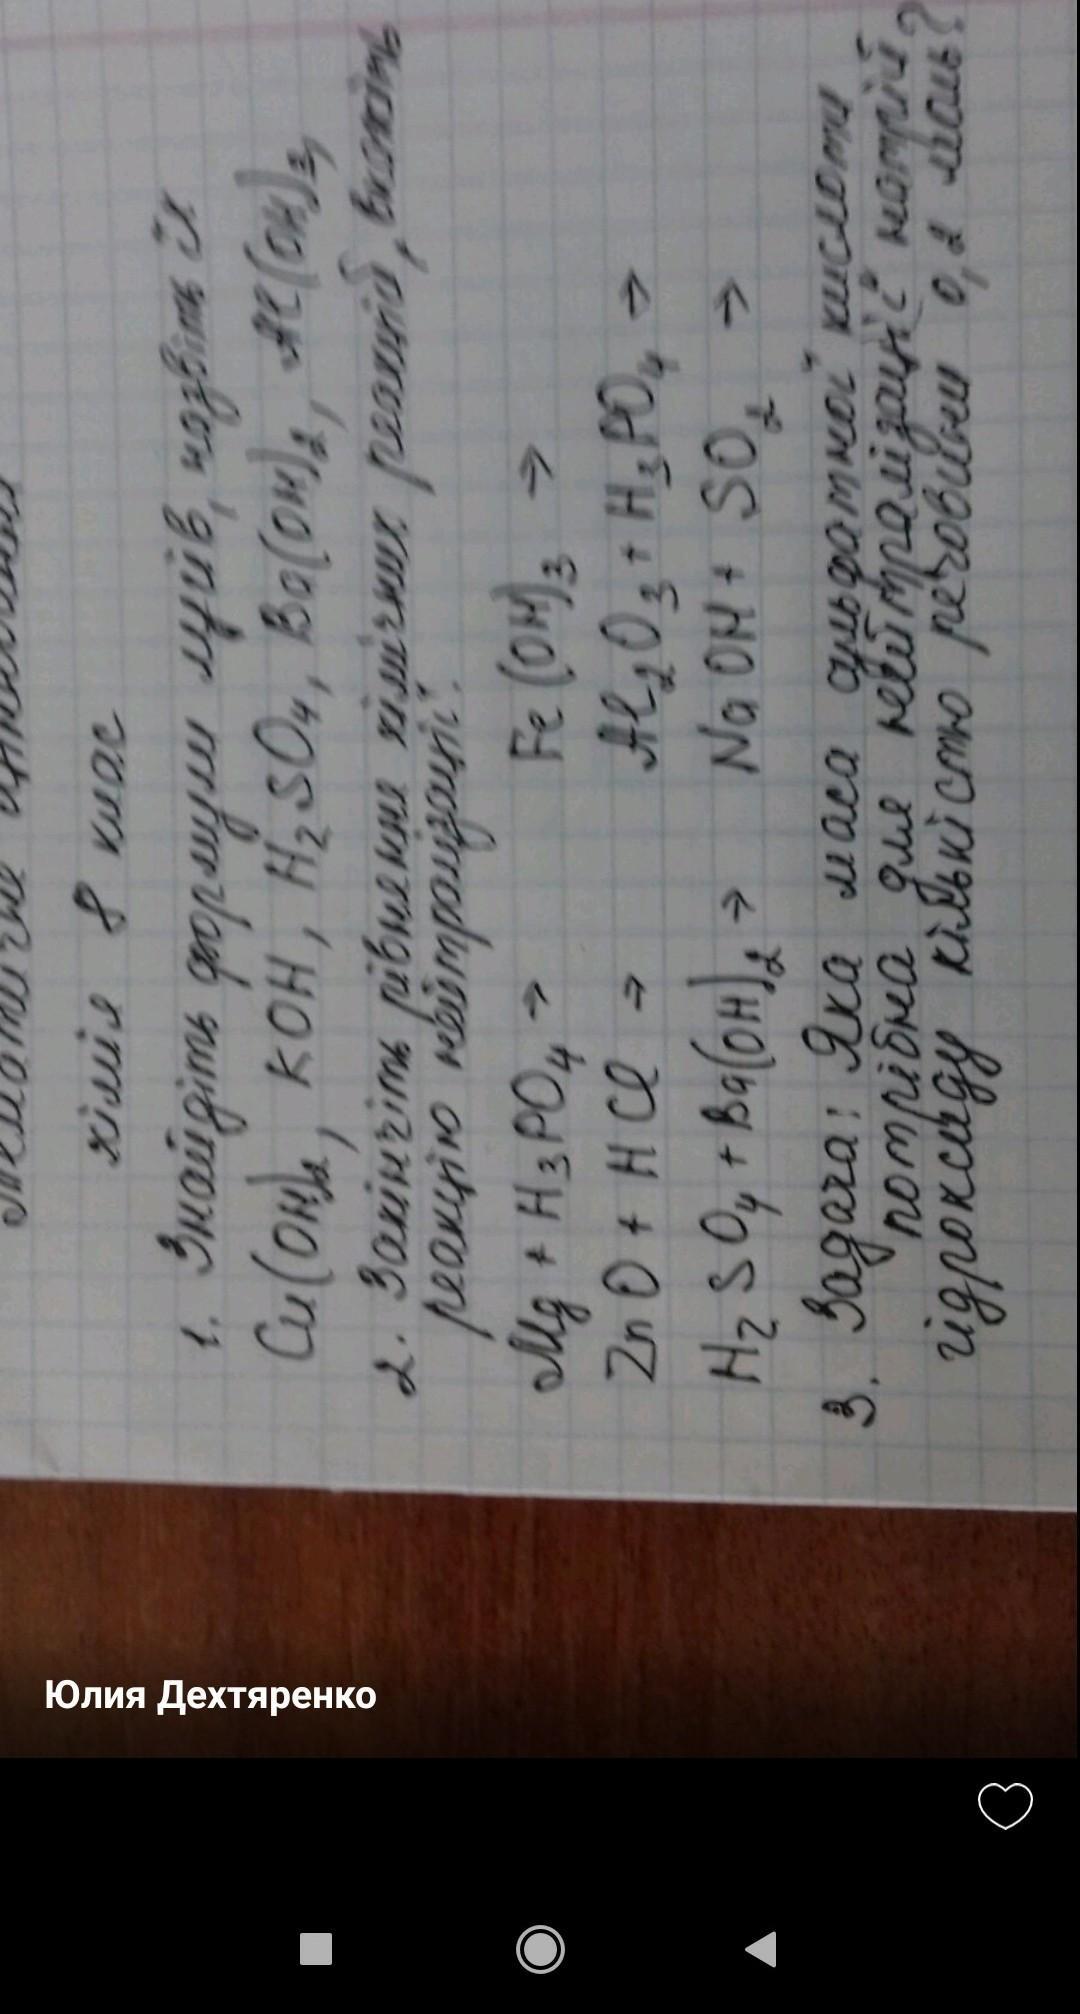 хімія 8 клас
1. Знайдіть формули лугів, назвіть їх
Cu(OH)2, KOH, H2SO4, Ba(OH)2, Al(OH)3,
2. Закінчіть рівняння хімічних реакцій, вкажіть
реакцію нейтралізації.
Mg + H3PO4 → Fe(OH)3 →
ZnO + HCl → Al2O3 + H3PO4 →
H2SO4 + Ba(OH)2 → NaOH + SO2 →
3. Задача: Яка маса сульфатної кислоти
потрібна для нейтралізації натрій
гідроксиду кількістю речовини 0,2 моль?
Юлия Дехтяренко